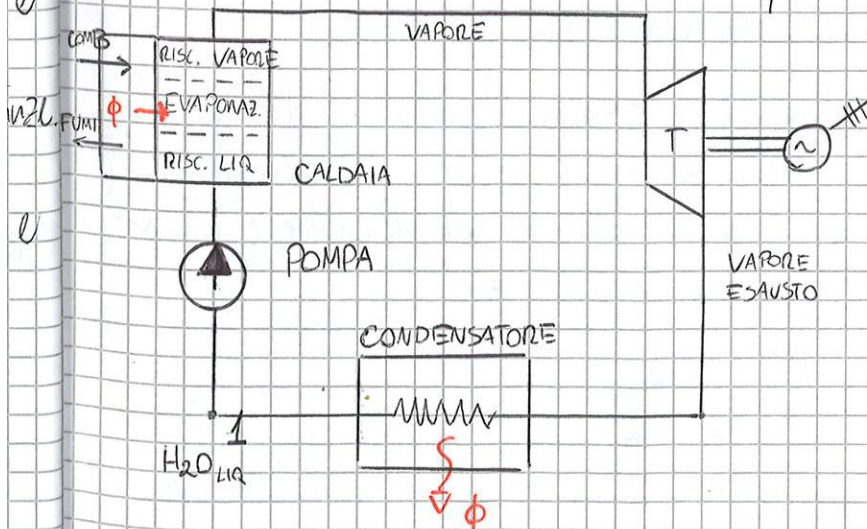 VAPORE
COMB
RISC. VAPORE
EVAPORAZ.
ϕ
FUMI
RISC. LIQ
CALDAIA
T
~
POMPA
VAPORE
ESAUSTO
CONDENSATORE
1
H₂O LIQ
ϕ